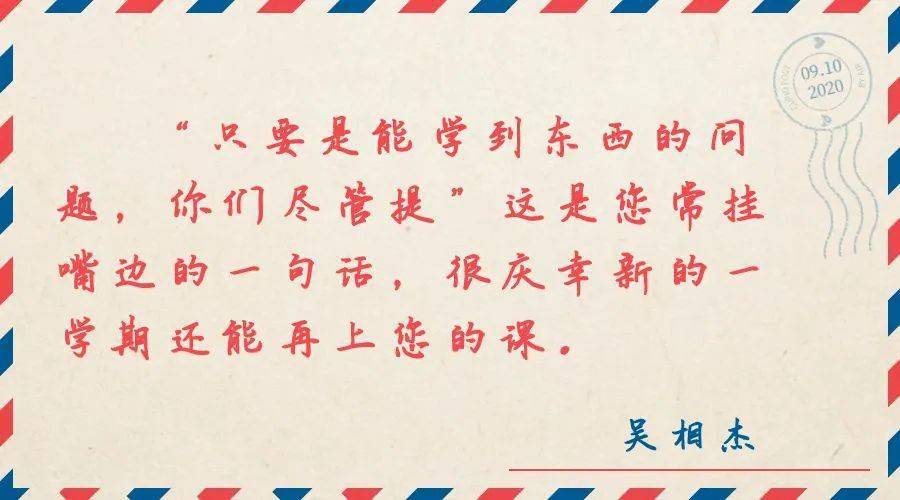 “只要是能学到东西的问
题，你们尽管提”这是您常挂
嘴边的一句话，很庆幸新的一
学期还能再上您的课。
吴相杰
09.10
2020